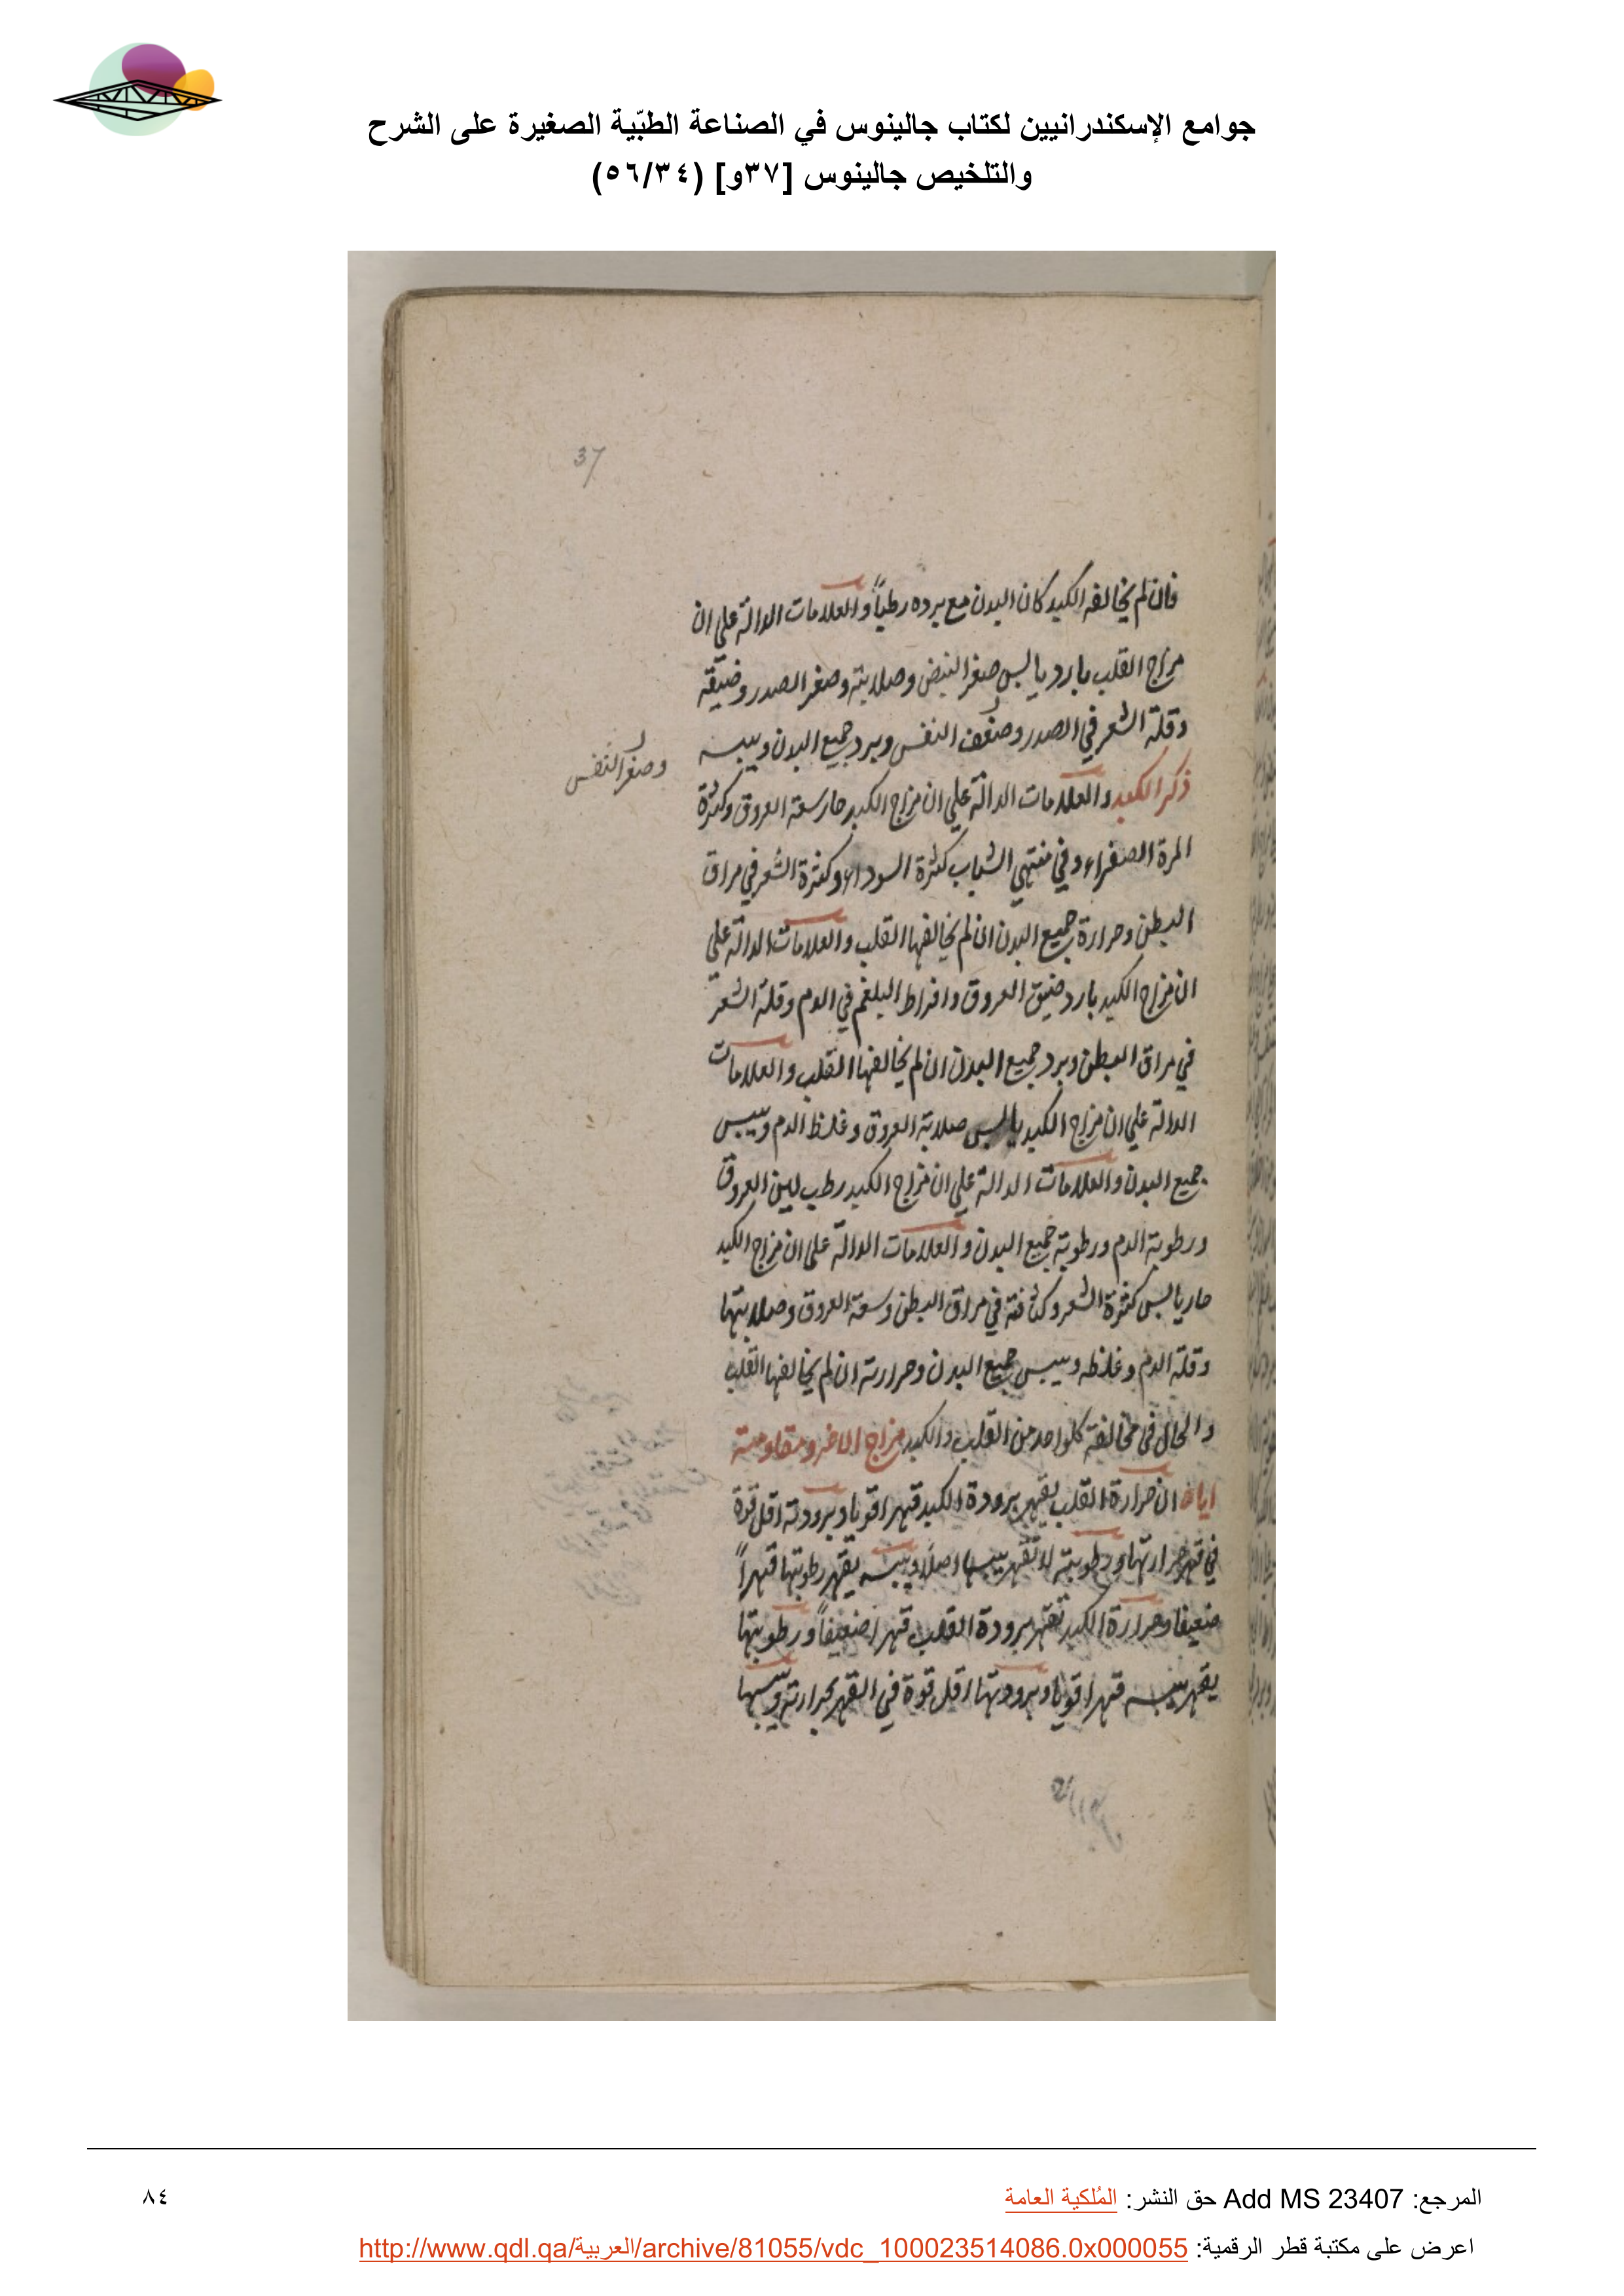 جوامع الإسكندرانيين لكتاب جالينوس في الصناعة الطبّية الصغيرة على الشرح
والتلخيص جالينوس [٣٧و] (٥٦/٣٤)
37
فان لم يخالفه الكبد كان البدن مع برده رطباً والعلامات الدالة على ان
مزاج القلب بارد يابس صغر النبض وصلابته وصغر الصدر وضيقه
وقلة الشعر في الصدر وضعف النفس وبرد جميع البدن ويبسه
وصغر النفس
ذكر الكبد والعلامات الدالة علي ان مزاج الكبد حار سعة العروق وكثرة
المرة الصفراء وفي منتهي الشباب كثرة السوداء وكثرة الشعر في مراق
البطن وحرارة جميع البدن ان لم يخالفها القلب والعلامات الدالة علي
ان مزاج الكبد بارد ضيق العروق وافراط البلغم في الدم وقلة الشعر
في مراق البطن وبرد جميع البدن ان لم يخالفها القلب والعلامات
الدالة علي ان مزاج الكبد يابس صلابة العروق وغلظ الدم ويبس
جميع البدن والعلامات الدالة علي ان مزاج الكبد رطب لين العروق
ورطوبة الدم ورطوبة جميع البدن والعلامات الدالة على ان مزاج الكبد
حار يابس كثرة الشعر وكثافته في مراق البطن وسعة العروق وصلابتها
وقلة الدم وغلظه ويبس جميع البدن وحرارته ان لم يخالفها القلب
والحال في مخالفة كل واحد من القلب والكبد مزاج الاخر ومقاومته
اياه ان حرارة القلب يقهر برودة الكبد قهرا قويا وبرودته اقل قوة
في قهر حرارتها ورطوبته لا تقهر يبسها اصلاً ويبسه يقهر رطوبتها قهراً
ضعيفا وحرارة الكبد تقهر برودة القلب قهرا ضعيفاً ورطوبتها
يقهر يبسه قهرا قويا وبرودتها اقل قوة في القهر لحرارته ويبسها
المرجع: Add MS 23407 حق النشر: المُلكية العامة
٨٤
اعرض على مكتبة قطر الرقمية: http://www.qdl.qa/العربية/archive/81055/vdc_100023514086.0x000055